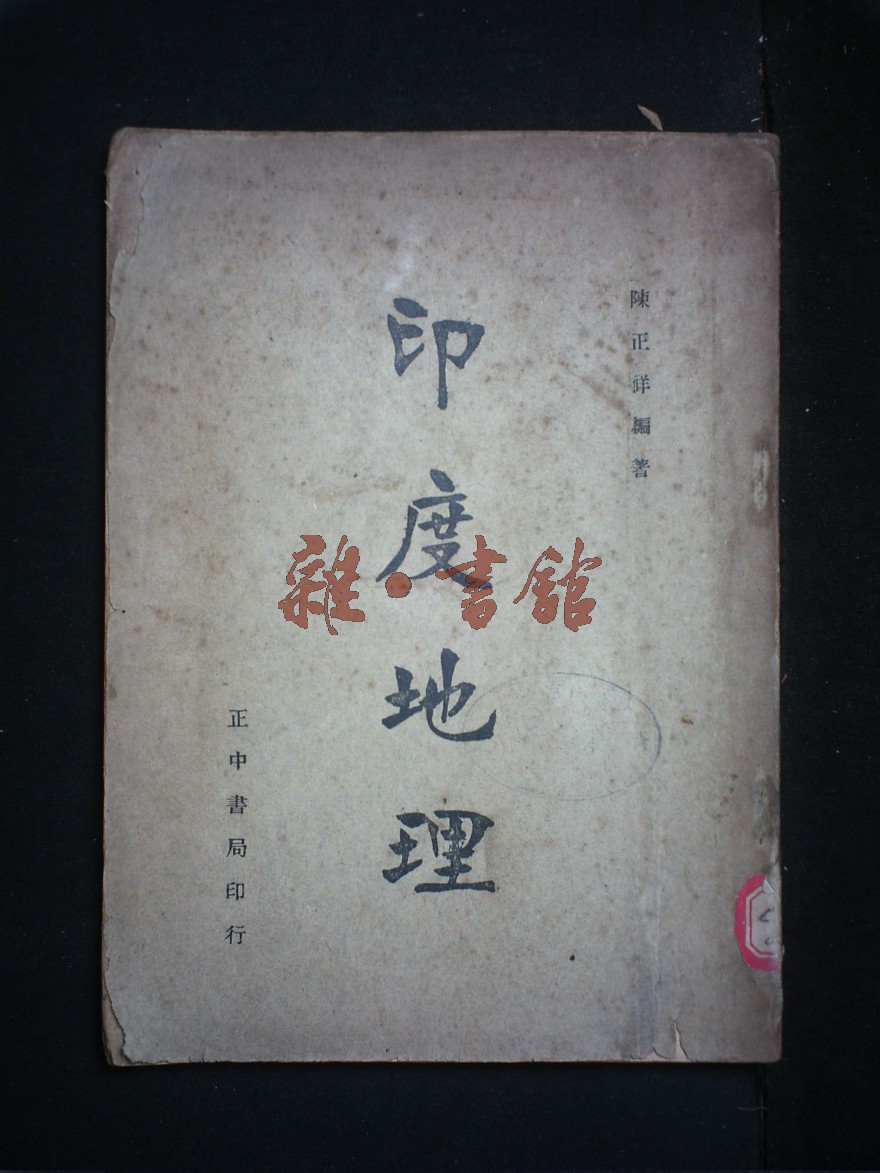 陳正祥編著
印度地理
正中書局印行
雜·書館